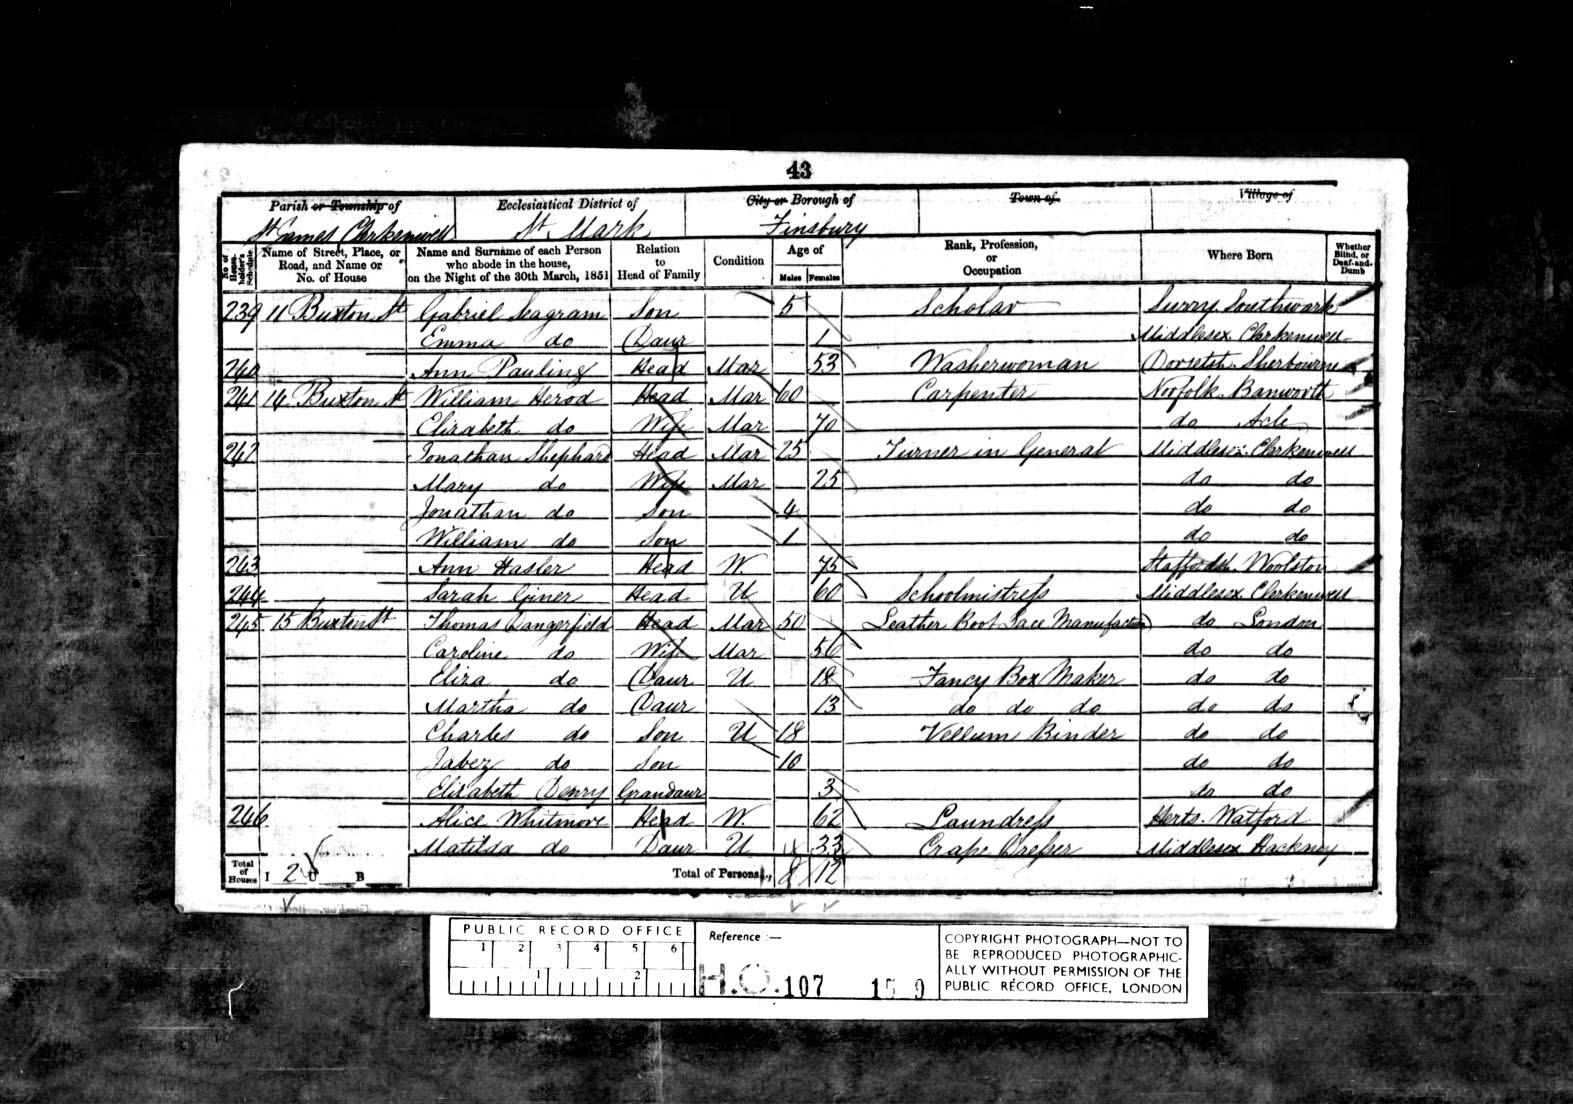 43
Parish or Township of Ecclesiastical District of City or Borough of Town of Village of
St James Clerkenwell St Mark Finsbury
No. of House-holder's Schedule Name of Street, Place, or Road, and Name or No. of House Name and Surname of each Person who abode in the house, on the Night of the 30th March, 1851 Relation to Head of Family Condition Age of Males Females Rank, Profession, or Occupation Where Born Whether Blind, or Deaf-and-Dumb
239 11 Buxton St Gabriel Seagram Son 5 Scholar Surry Southwark
Emma do Daur 1 Middlesex Clerkenwell
240 Ann Pauling Head Mar 53 Washerwoman Dorsetsh. Sherbourne
241 14 Buxton St William Herod Head Mar 60 Carpenter Norfolk Banworth
Elizabeth do Wife Mar 70 do Acle
242 Jonathan Shephard Head Mar 25 Turner in General Middlesex Clerkenwell
Mary do Wife Mar 25 do do
Jonathan do Son 4 do do
William do Son 1 do do
243 Ann Hasler Head W 75 Staffordsh. Woolston
244 Sarah Giner Head U 60 Schoolmistress Middlesex Clerkenwell
245 15 Buxton St Thomas Dangerfield Head Mar 50 Leather Boot Lace Manufacturer do London
Caroline do Wife Mar 56 do do
Eliza do Daur U 18 Fancy Box Maker do do
Martha do Daur 13 do do do do do
Charles do Son U 18 Vellum Binder do do
Jabez do Son 10 do do
Elizabeth Denry Grandaur 3 do do
246 Alice Whitmore Head W 62 Laundress Herts. Watford
Matilda do Daur U 33 Crape Dresser Middlesex Hackney
Total of Houses I 2 U B Total of Persons 8 12
PUBLIC RECORD OFFICE
1 2 3 4 5 6
1 2
Reference :—
H.O. 107 15 9
COPYRIGHT PHOTOGRAPH—NOT TO
BE REPRODUCED PHOTOGRAPHIC-
ALLY WITHOUT PERMISSION OF THE
PUBLIC RECORD OFFICE, LONDON